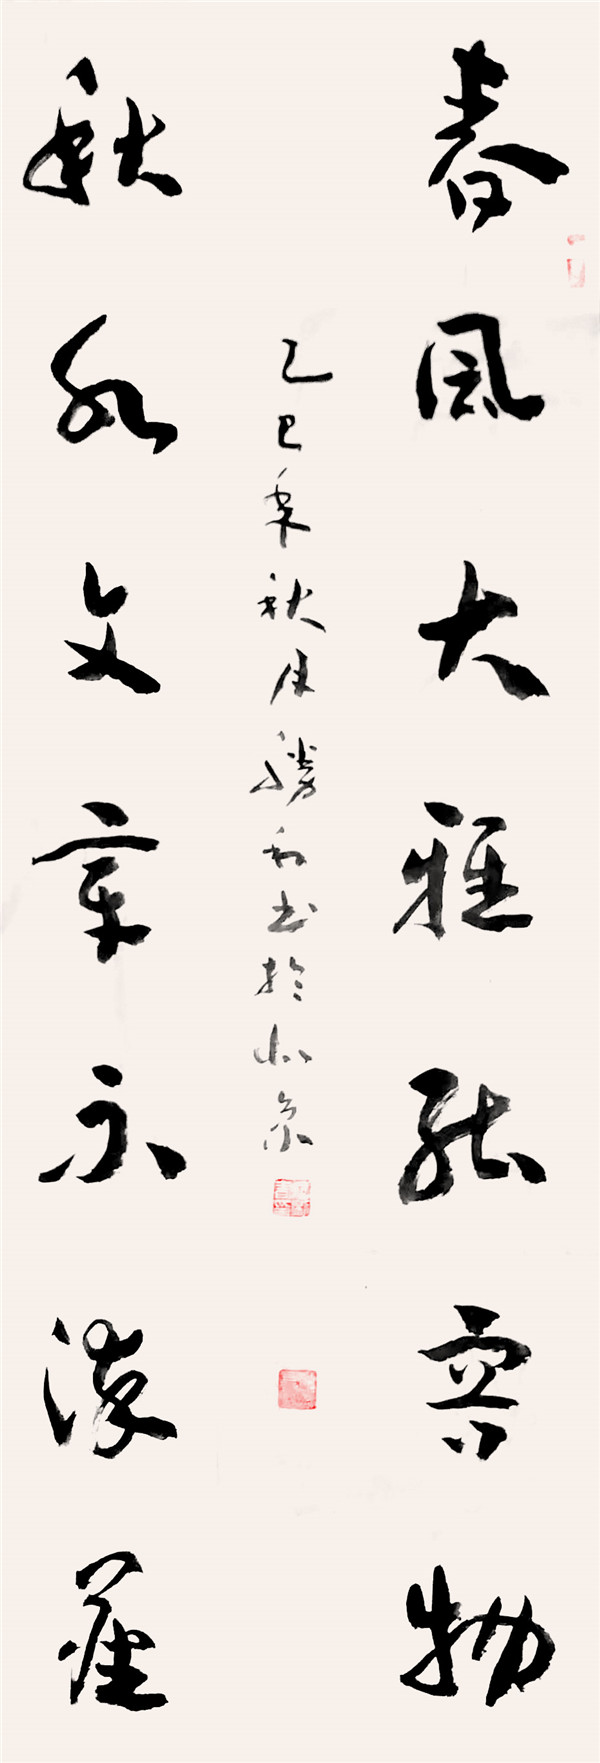 春風大雅能容物
秋水文章不染塵
乙巳年秋月勝利书於北京